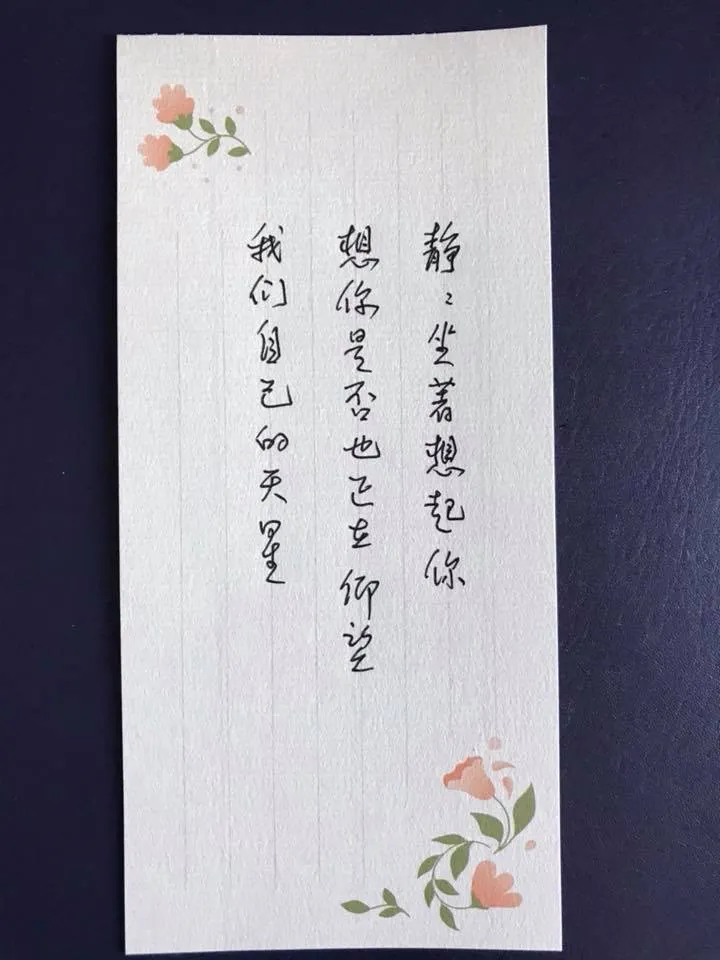 静〻坐着想起你
想你是否也正在仰望
我们自己的天星